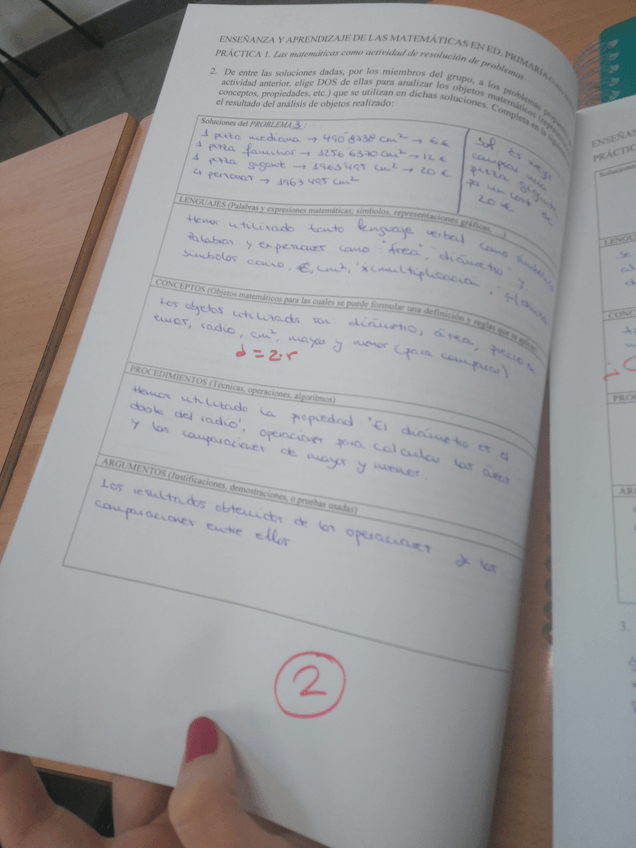 ENSEÑANZA Y APRENDIZAJE DE LAS MATEMÁTICAS EN ED. PRIMARIA
PRÁCTICA 1. Las matemáticas como actividad de resolución de problemas
2. De entre las soluciones dadas, por los miembros del grupo, a los problemas
actividad anterior, elige DOS de ellas para analizar los objetos matemáticos
conceptos, propiedades, etc.) que se utilizan en dichas soluciones. Completa en la
el resultado del análisis de objetos realizado:
Soluciones del PROBLEMA 3:
1 pizza mediana → 490'8738 cm² → 6€
1 pizza familiar → 1256'6370 cm² → 12€
1 pizza gigante → 1963'495 cm² → 20€
4 personas → 1963'495 cm²
Sol es mejor
comprar una
pizza gigante
por un coste de
20 €
LENGUAJES (Palabras y expresiones matemáticas, símbolos, representaciones gráficas, ...)
Hemos utilizado tanto lenguaje verbal como simbólico
Palabras y expresiones como "área", "diámetro" y
símbolos como, €, cm², "x" multiplicación,
CONCEPTOS (Objetos matemáticos para las cuales se puede formular una definición y reglas que se aplican)
Los objetos utilizados son: diámetro, área, precio en
euros, radio, cm², mayor y menor (para comparar)
d = 2·r
PROCEDIMIENTOS (Técnicas, operaciones, algoritmos)
Hemos utilizado la propiedad "El diámetro es el
doble del radio", operaciones para calcular las áreas
y las comparaciones de mayor y menor
ARGUMENTOS (Justificaciones, demostraciones, o pruebas usadas)
Los resultados obtenidos de las operaciones y las
comparaciones entre ellos
2
ENSEÑAN
PRÁCTIC
Solucione
LENGU
CONC
PROC
AR
3.